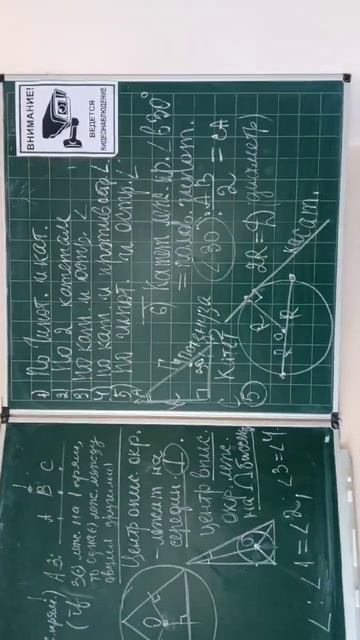 ВНИМАНИЕ!
ВЕДЕТСЯ
ВИДЕОНАБЛЮДЕНИЕ
1) По гипот. и кат.
2) По 2 катетам
3) По кат и остр. ∠
4) по кат и противост ∠
5) по гипот. и остр. ∠
6) Катет леж. пр. ∠ в 30°
= полов. гипот.
∠30°: AB/2 = CA
гипотенуза
Катет
5
2R = D (диаметр)
касат.
R
A3: A B C
(If 3(·) леж. на 1 прям,
то одна(·) леж. между
двумя другими)
Центр опис. окр.
- лежит на
середин.
Центр впис.
окр. леж.
на ∩ биссек
∠: ∠1 = ∠2; ∠3 = ∠4